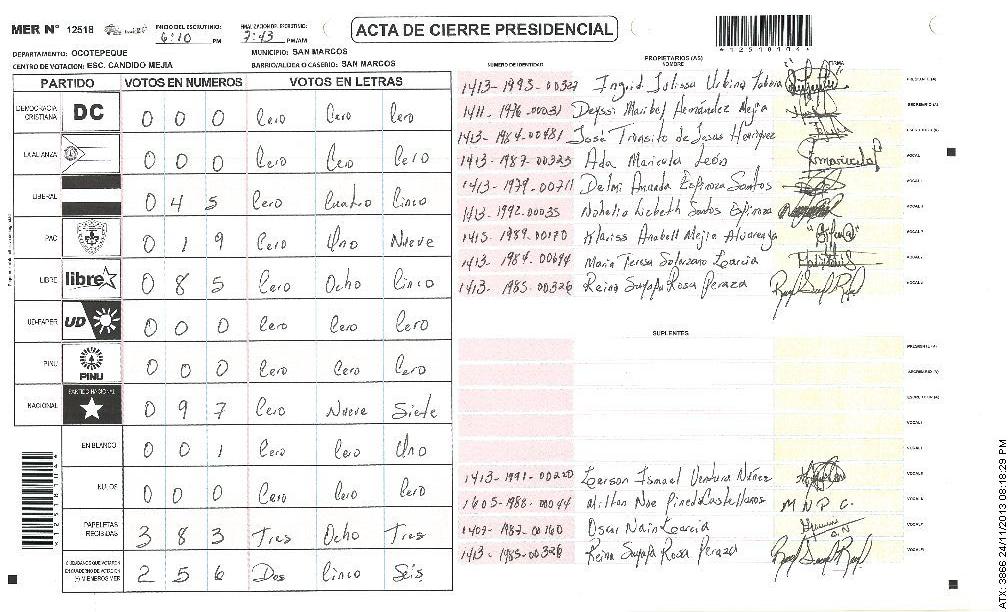 MER Nº 12518
INICIO DEL ESCRUTINIO: 6:10 PM
FINALIZACION DEL ESCRUTINIO: 7:43 PM/AM
ACTA DE CIERRE PRESIDENCIAL
DEPARTAMENTO: OCOTEPEQUE
MUNICIPIO: SAN MARCOS
CENTRO DE VOTACION: ESC. CANDIDO MEJIA
BARRIO/ALDEA O CASERIO: SAN MARCOS
PARTIDO VOTOS EN NUMEROS VOTOS EN LETRAS
DEMOCRACIA CRISTIANA DC 0 0 0 Cero Cero Cero
LA ALIANZA 0 0 0 Cero Cero Cero
LIBERAL 0 4 5 Cero Cuatro Cinco
PAC 0 1 9 Cero Uno Nueve
LIBRE libre 0 8 5 Cero Ocho Cinco
UD-FAPER UD 0 0 0 Cero Cero Cero
PINU PINU 0 0 0 Cero Cero Cero
NACIONAL PARTIDO NACIONAL 0 9 7 Cero Nueve Siete
EN BLANCO 0 0 1 Cero Cero Uno
NULOS 0 0 0 Cero Cero Cero
PAPELETAS RECIBIDAS 3 8 3 Tres Ocho Tres
CIUDADANOS QUE VOTARON EN CUADERNO DE VOTACION (+) MIEMBROS MER 2 5 6 Dos Cinco Seis
PROPIETARIOS (AS)
NUMERO DE IDENTIDAD NOMBRE FIRMA
1413-1993-00327 Ingrid Julissa Urbina Tabora PRESIDENTE (A)
1411-1976-00031 Deyssi Maribel Hernández Mejia SECRETARIO (A)
1413-1984-00481 José Transito de Jesus Henriquez
1413-1987-00325 Ada Maricela León VOCAL
1413-1979-00711 Delmi Amanda Espinoza Santos VOCAL
1413-1992-00035 Nohelia Lizbeth Santos Espinoza VOCAL
1413-1989-00170 Klariss Anabell Mejia Alvarenga VOCAL
1413-1984-00694 Maria Teresa Solorzano Garcia VOCAL
1413-1985-00326 Reina Suyapa Rosa Peraza VOCAL
SUPLENTES
PRESIDENTE (A)
SECRETARIO (A)
ESCRUTADOR (A)
VOCAL
VOCAL
1413-1991-00220 Gerson Ismael Ventura Núñez VOCAL
1605-1988-00044 Milton Noe Pineda Castellanos M N P C. VOCAL
1407-1987-00160 Oscar Nain Garcia VOCAL
1413-1985-00326 Reina Suyapa Rosa Peraza VOCAL
ATX: 3866 24/11/2013 08:18:29 PM